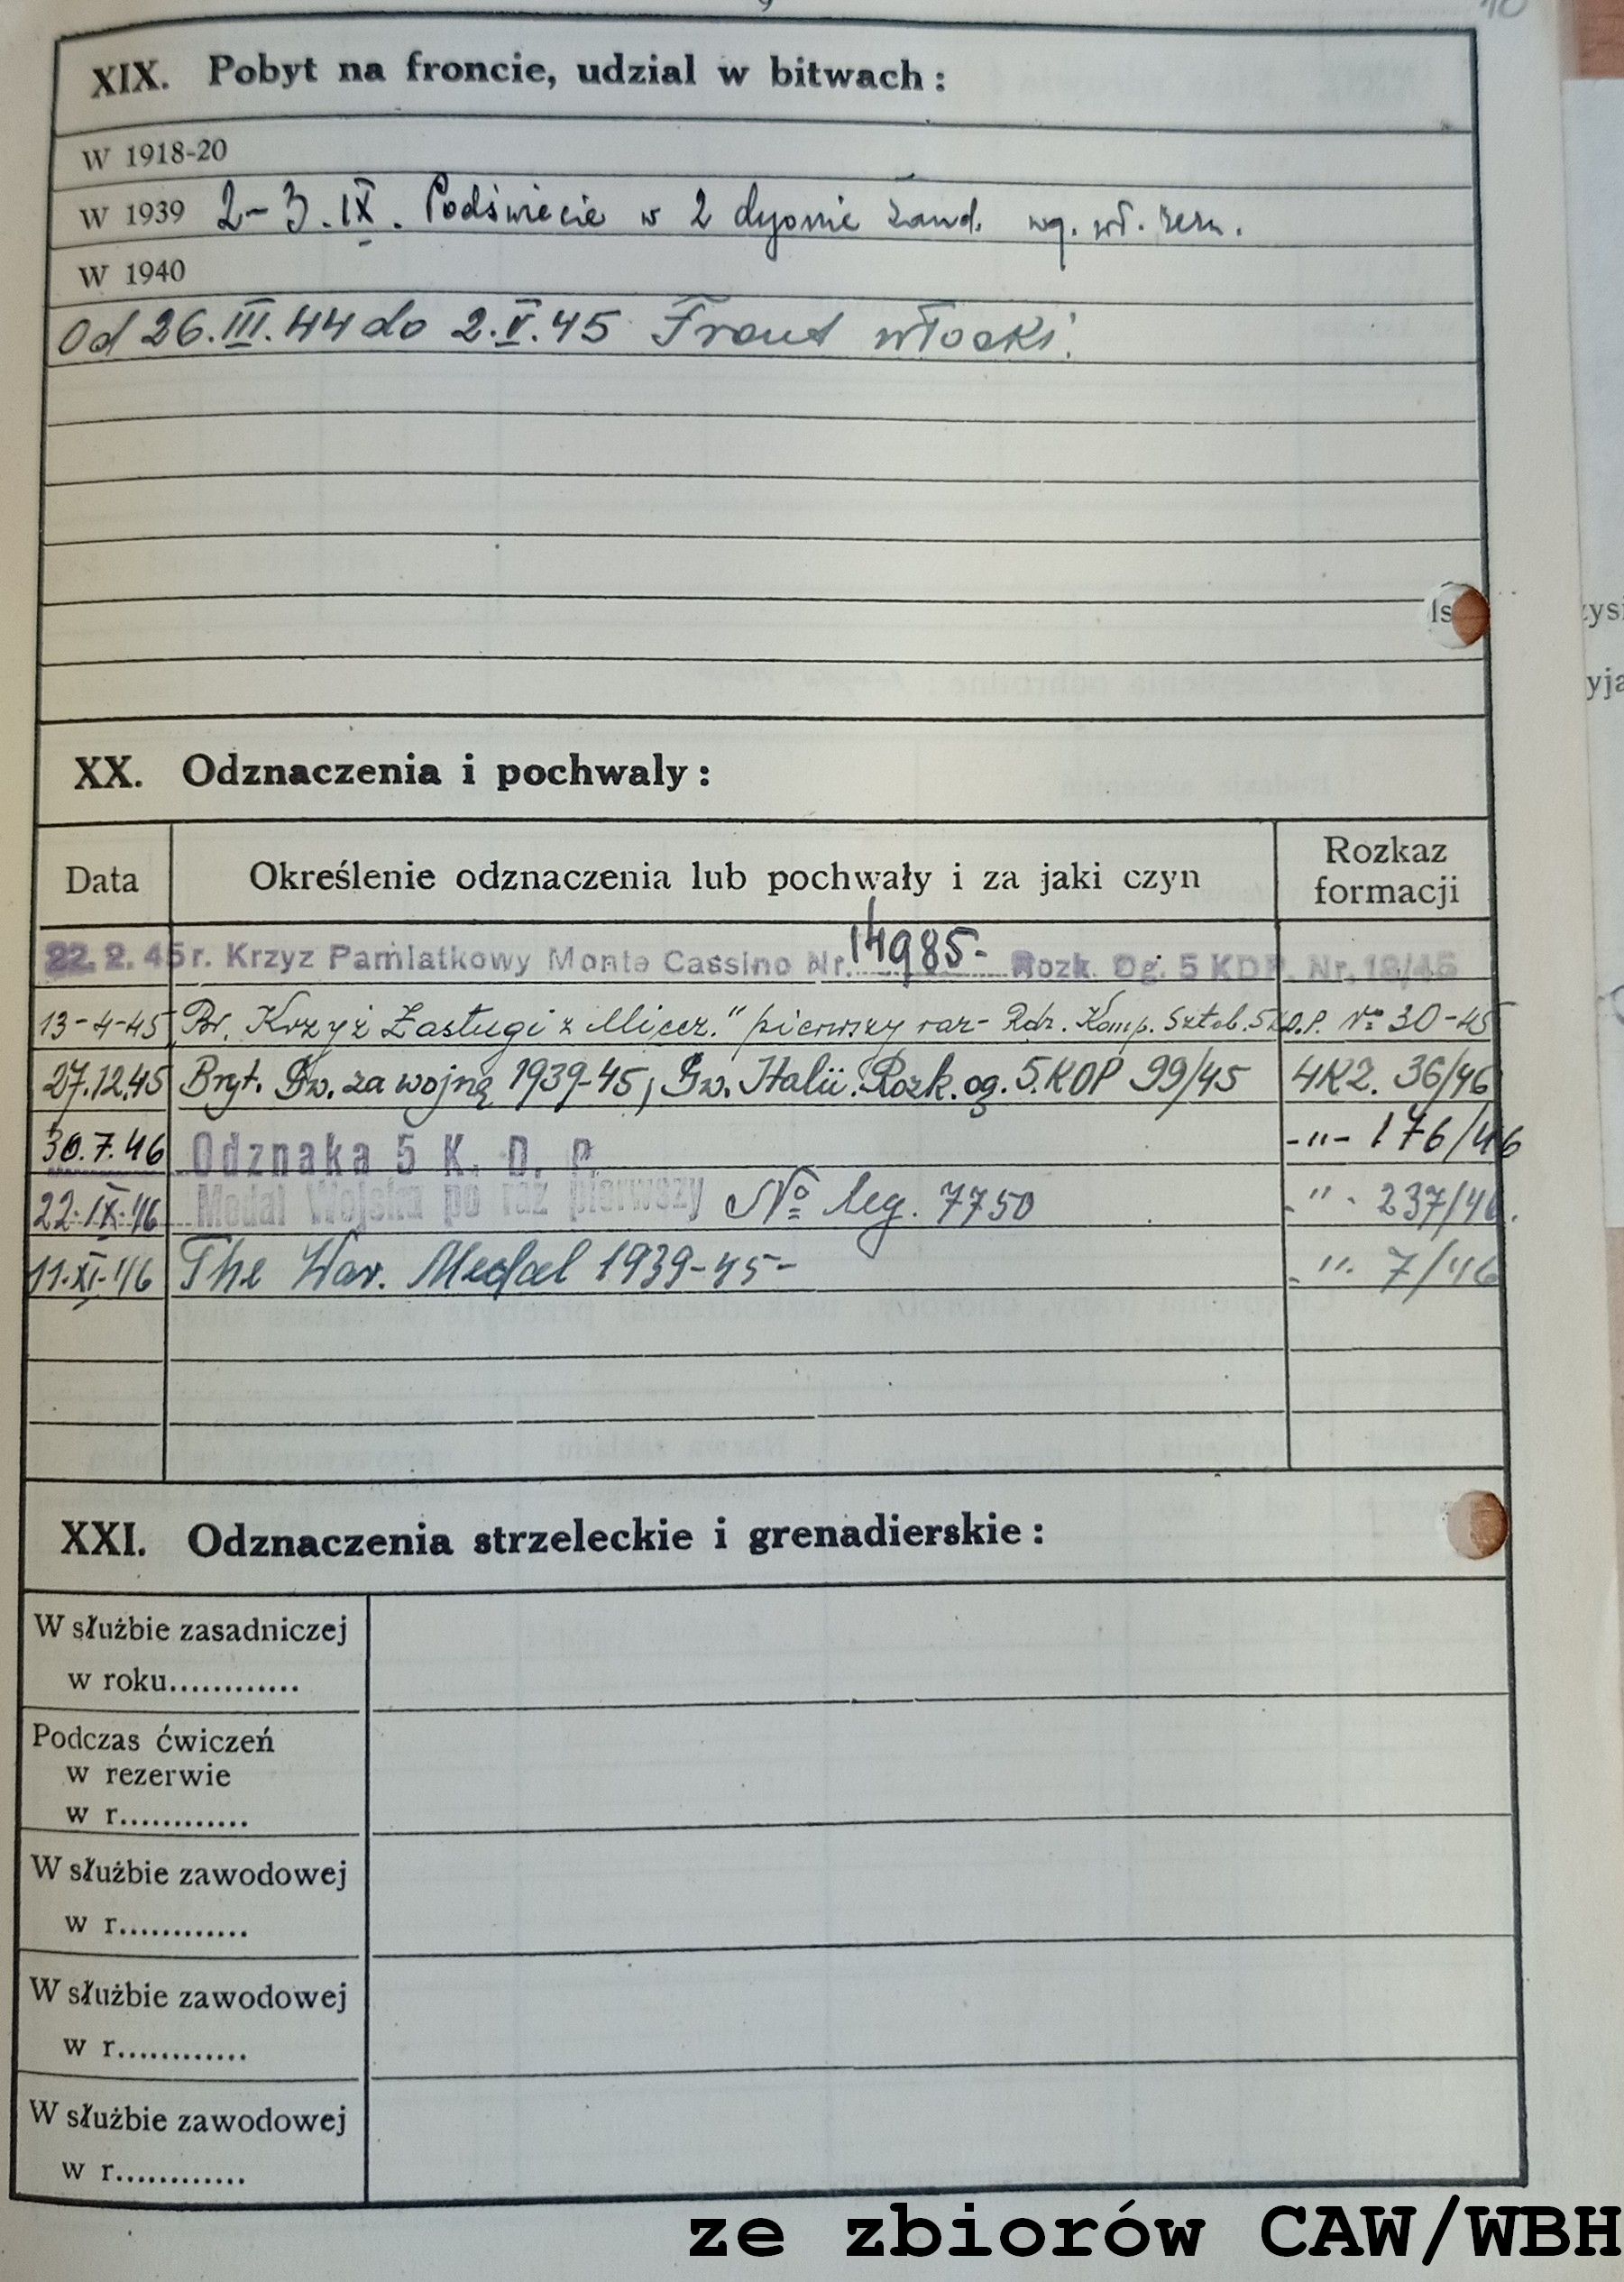 10
XIX. Pobyt na froncie, udzial w bitwach :
W 1918-20
W 1939 2-3.IX. Podświecie w 2 dyonie żand. wg. wł. zezn.
W 1940
Od 26.III.44 do 2.V.45 Front włoski.
ls
XX. Odznaczenia i pochwaly :
Data Określenie odznaczenia lub pochwały i za jaki czyn Rozkaz formacji
22.2.45r. Krzyz Pamiatkowy Monte Cassino Nr. 14985- Rozk. Og. 5 KDP. Nr. 18/45
13-4-45 Br. Krzyż Zasługi z Miecz." pierwszy raz - Rdz. Komp. Sztab. 5 K.D.P. No 30-45
27.12.45 Bryt. Gw. za wojnę 1939-45, Gw. Italii. Rozk. og. 5.KDP 99/45 4K2. 36/46
30.7.46 Odznaka 5 K. D. P. -"- 176/46
22.IX.46 Medal Wojska po raz pierwszy No leg. 7750 -"- 237/46.
11.XI.46 The War. Medal 1939-45- -"- 7/46
XXI. Odznaczenia strzeleckie i grenadierskie :
W służbie zasadniczej
w roku............
Podczas ćwiczeń
w rezerwie
w r............
W służbie zawodowej
w r............
W służbie zawodowej
w r............
W służbie zawodowej
w r............
ze zbiorów CAW/WBH